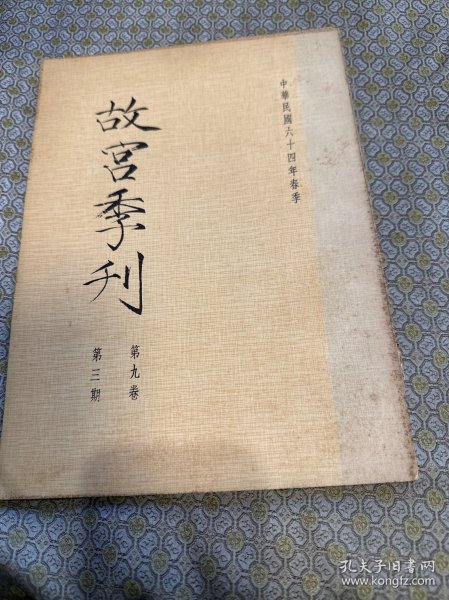 中華民國六十四年春季
故宮季刊
第九卷
第三期
孔夫子旧书网
www.kongfz.com